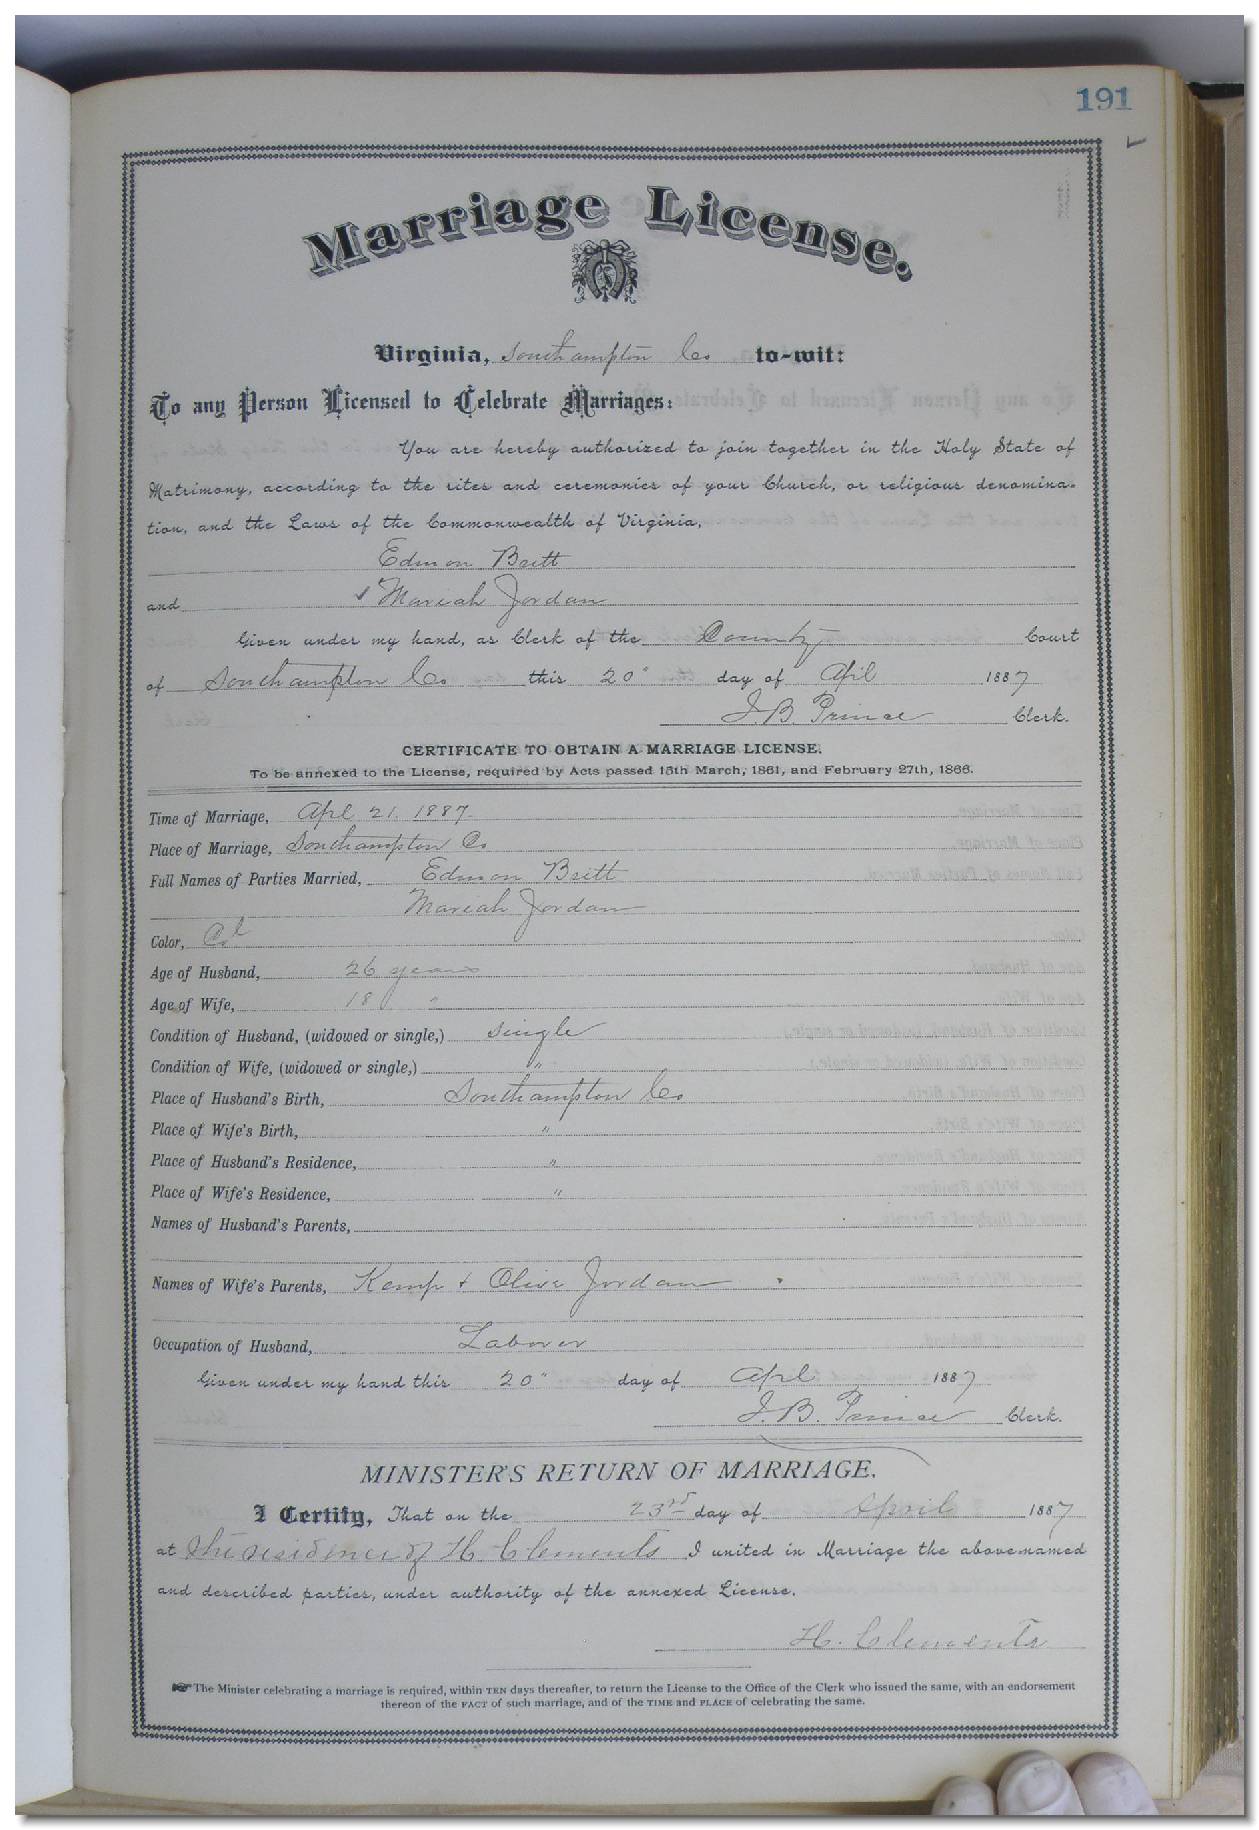 191
Marriage License.
Virginia, Southampton Co to-wit:
To any Person Licensed to Celebrate Marriages:
You are hereby authorized to join together in the Holy State of
Matrimony, according to the rites and ceremonies of your Church, or religious denomina-
tion, and the Laws of the Commonwealth of Virginia,
Edmon Britt
and ✓ Mareah Jordan
Given under my hand, as Clerk of the County Court
of Southampton Co this 20" day of Apil 1887
J. B. Prince Clerk.
CERTIFICATE TO OBTAIN A MARRIAGE LICENSE.
To be annexed to the License, required by Acts passed 15th March, 1861, and February 27th, 1866.
Time of Marriage, Apl 21. 1887.
Place of Marriage, Southampton Co
Full Names of Parties Married, Edmon Britt
Mareah Jordan
Color, Col
Age of Husband, 26 years
Age of Wife, 18 "
Condition of Husband, (widowed or single,) single
Condition of Wife, (widowed or single,) "
Place of Husband's Birth, Southampton Co
Place of Wife's Birth, "
Place of Husband's Residence, "
Place of Wife's Residence, "
Names of Husband's Parents,
Names of Wife's Parents, Kemp & Olive Jordan
Occupation of Husband, Laborer
Given under my hand this 20" day of Apl 1887
J. B. Prince Clerk.
MINISTER'S RETURN OF MARRIAGE.
I Certify, That on the 23rd day of April 1887
at The residence of H. Clements I united in Marriage the above-named
and described parties, under authority of the annexed License.
H. Clements
☞ The Minister celebrating a marriage is required, within TEN days thereafter, to return the License to the Office of the Clerk who issued the same, with an endorsement
thereon of the FACT of such marriage, and of the TIME and PLACE of celebrating the same.